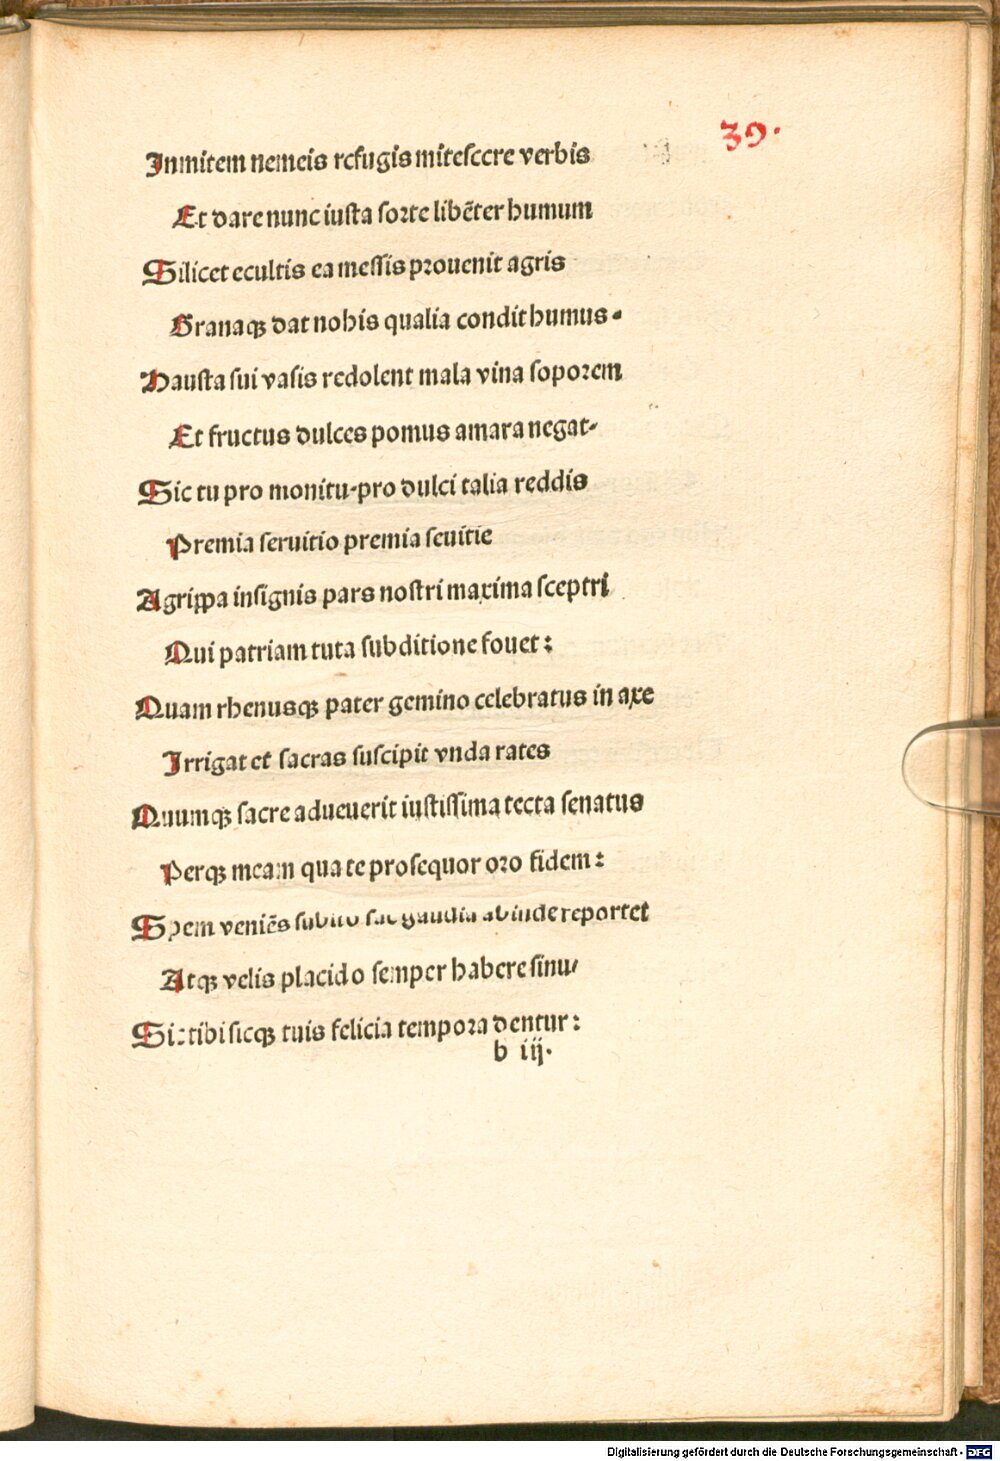 39.
Inmitem nemeis refugis mitescere verbis
Et dare nunc iusta sorte libēter humum
Silicet ecultis ea messis prouenit agris
Granaqꝫ dat nobis qualia condit humus.
Hausta sui vasis redolent mala vina soporem
Et fructus dulces pomus amara negat.
Sic tu pro monitu.pro dulci talia reddis
Premia seruitio premia seuitie
Agrippa insignis pars nostri maxima sceptri
Qui patriam tuta subditione fouet:
Quam rhenusqꝫ pater gemino celebratus in axe
Irrigat et sacras suscipit vnda rates
Quumqꝫ sacre adueuerit iustissima tecta senatus
Perqꝫ meam qua te prosequor oro fidem:
Spem veniēs subito fac gaudia abinde reportet
Atqꝫ velis placido semper habere sinu/
Sic tibi sicqꝫ tuis felicia tempora dentur:
b iij.
Digitalisierung gefördert durch die Deutsche Forschungsgemeinschaft - DFG